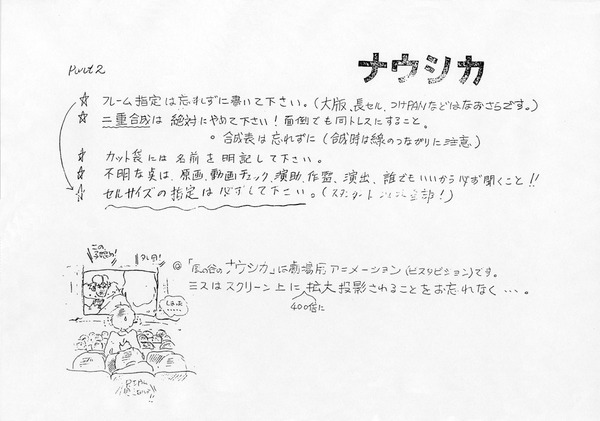 Part 2
ナウシカ
☆ フレーム指定は忘れずに書いて下さい。(大版、長セル、つけPANなどはなおさらです。)
☆ 二重合成は絶対にやめて下さい!面倒でも同トレスにすること。
。合成表は忘れずに(合成時は線のつながりに注意)
☆ カット袋には名前を明記して下さい。
☆ 不明な点は、原画、動画チェック、演助、作監、演出、誰でもいいから必ず聞くこと!!
☆ セルサイズの指定は必ずして下さい。(スタンダード
◎「風の谷のナウシカ」は劇場用アニメーション(ビスタビジョン)です。
ミスはスクリーン上に拡大投影されることをお忘れなく…。
400倍に